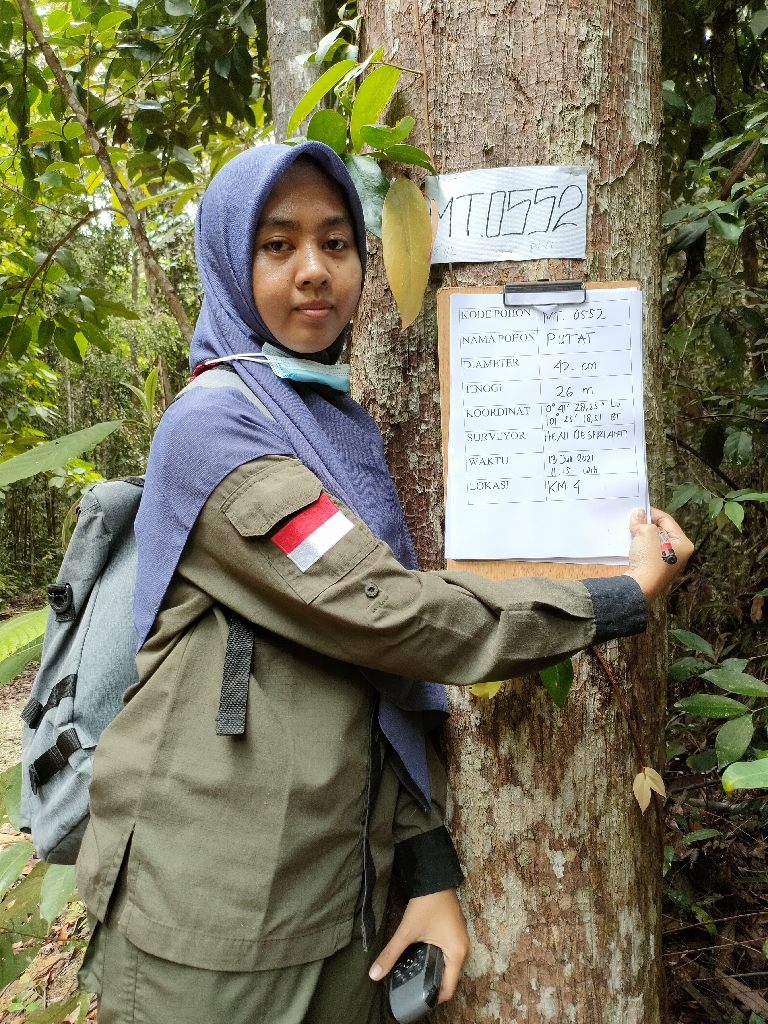 MT0552
KODE POHON MT. 0552
NAMA POHON PUTAT
DIAMETER 42 cm
TINGGI 26 m
KOORDINAT 0° 41' 28,25" LU
101° 23' 18,51" BT
SURVEYOR
WAKTU 13 Juli 2021
11.15 Wib
LOKASI KM 4